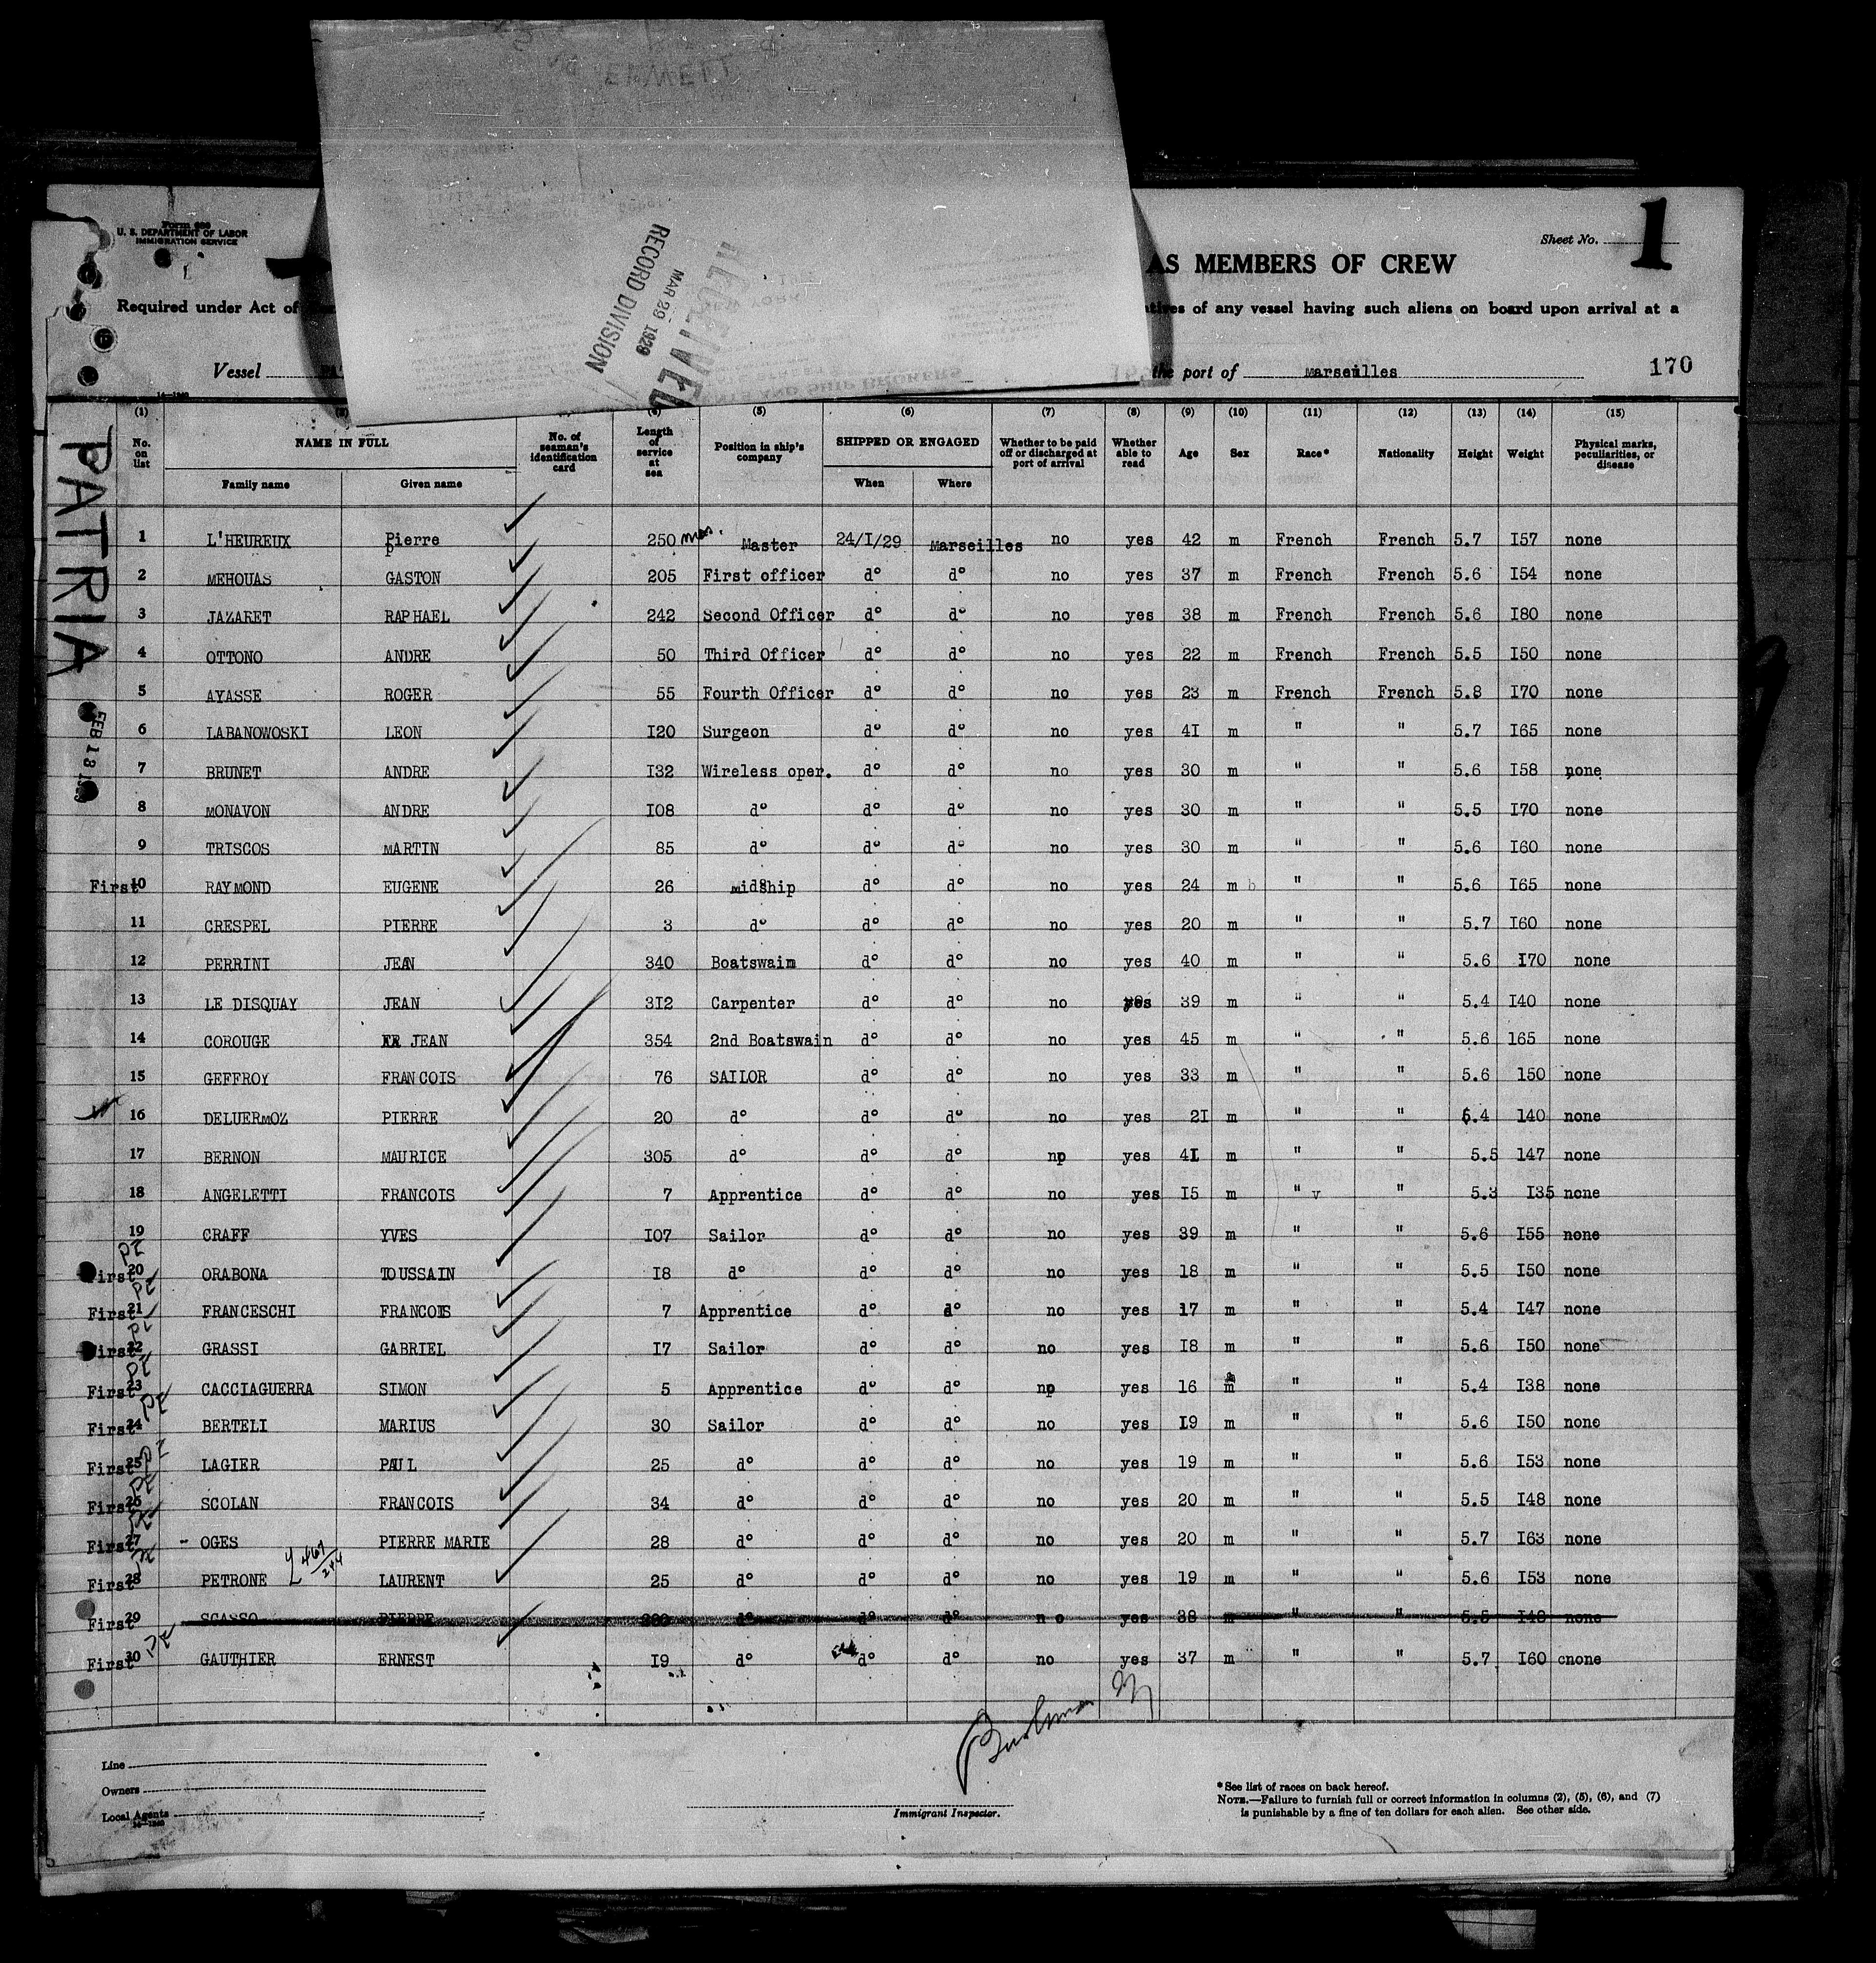 Form 680
U. S. DEPARTMENT OF LABOR
IMMIGRATION SERVICE
Sheet No. 1
AS MEMBERS OF CREW
Required under Act of
of any vessel having such aliens on board upon arrival at a
RECEIVED
MAR 29 1929
RECORD DIVISION
Vessel PA
the port of Marseilles
170
PATRIA
FEB 13
(1) (5) (6) (7) (8) (9) (10) (11) (12) (13) (14) (15)
No. on list NAME IN FULL Family name Given name No. of seaman's identification card Length of service at sea Position in ship's company SHIPPED OR ENGAGED When Where Whether to be paid off or discharged at port of arrival Whether able to read Age Sex Race* Nationality Height Weight Physical marks, peculiarities, or disease
1 L'HEUREUX Pierre 250 mos. Master 24/I/29 Marseilles no yes 42 m French French 5.7 I57 none
2 MEHOUAS GASTON 205 First officer d° d° no yes 37 m French French 5.6 I54 none
3 JAZARET RAPHAEL 242 Second Officer d° d° no yes 38 m French French 5.6 I80 none
4 OTTONO ANDRE 50 Third Officer d° d° no yes 22 m French French 5.5 I50 none
5 AYASSE ROGER 55 Fourth Officer d° d° no yes 23 m French French 5.8 I70 none
6 LABANOWOSKI LEON I20 Surgeon d° d° no yes 4I m " " 5.7 I65 none
7 BRUNET ANDRE I32 Wireless oper. d° d° no yes 30 m " " 5.6 I58 none
8 MONAVON ANDRE I08 d° d° d° no yes 30 m " " 5.5 I70 none
9 TRISCOS MARTIN 85 d° d° d° no yes 30 m " " 5.6 I60 none
First 10 RAYMOND EUGENE 26 midship d° d° no yes 24 m " " 5.6 I65 none
11 CRESPEL PIERRE 3 d° d° d° no yes 20 m " " 5.7 I60 none
12 PERRINI JEAN 340 Boatswaim d° d° no yes 40 m " " 5.6 I70 none
13 LE DISQUAY JEAN 3I2 Carpenter d° d° no yes 39 m " " 5.4 I40 none
14 COROUGE JEAN 354 2nd Boatswain d° d° no yes 45 m " " 5.6 165 none
15 GEFFROY FRANCOIS 76 SAILOR d° d° no yes 33 m " " 5.6 150 none
16 DELUERMOZ PIERRE 20 d° d° d° no yes 2I m " " 6.4 140 none
17 BERNON MAURICE 305 d° d° d° np yes 4I m " " 5.5 147 none
18 ANGELETTI FRANCOIS 7 Apprentice d° d° no yes I5 m " v " 5.3 I35 none
19 CRAFF YVES I07 Sailor d° d° no yes 39 m " " 5.6 I55 none
First 20 ORABONA TOUSSAIN I8 d° d° d° no yes 18 m " " 5.5 I50 none
First 21 FRANCESCHI FRANCOIS 7 Apprentice d° d° no yes 17 m " " 5.4 I47 none
First 22 GRASSI GABRIEL I7 Sailor d° d° no yes I8 m " " 5.6 I50 none
First 23 CACCIAGUERRA SIMON 5 Apprentice d° d° np yes 16 m " " 5.4 I38 none
First 24 BERTELI MARIUS 30 Sailor d° d° no yes I9 m " " 5.6 I50 none
First 25 LAGIER PAUL 25 d° d° d° no yes 19 m " " 5.6 I53 none
First 26 SCOLAN FRANCOIS 34 d° d° d° no yes 20 m " " 5.5 I48 none
First 27 - OGES PIERRE MARIE 28 d° d° d° no yes 20 m " " 5.7 I63 none
First 28 PETRONE LAURENT 25 d° d° d° no yes 19 m " " 5.6 I53 none
First 29 SCASSO PIERRE d° d° d° no yes 38 m " " 5.5 I48 none
First 30 GAUTHIER ERNEST I9 d° d° d° no yes 37 m " " 5.7 I60 cnone
Line
Owners
Local Agents
Immigrant Inspector.
*See list of races on back hereof.
NOTE.—Failure to furnish full or correct information in columns (2), (5), (6), and (7)
is punishable by a fine of ten dollars for each alien. See other side.